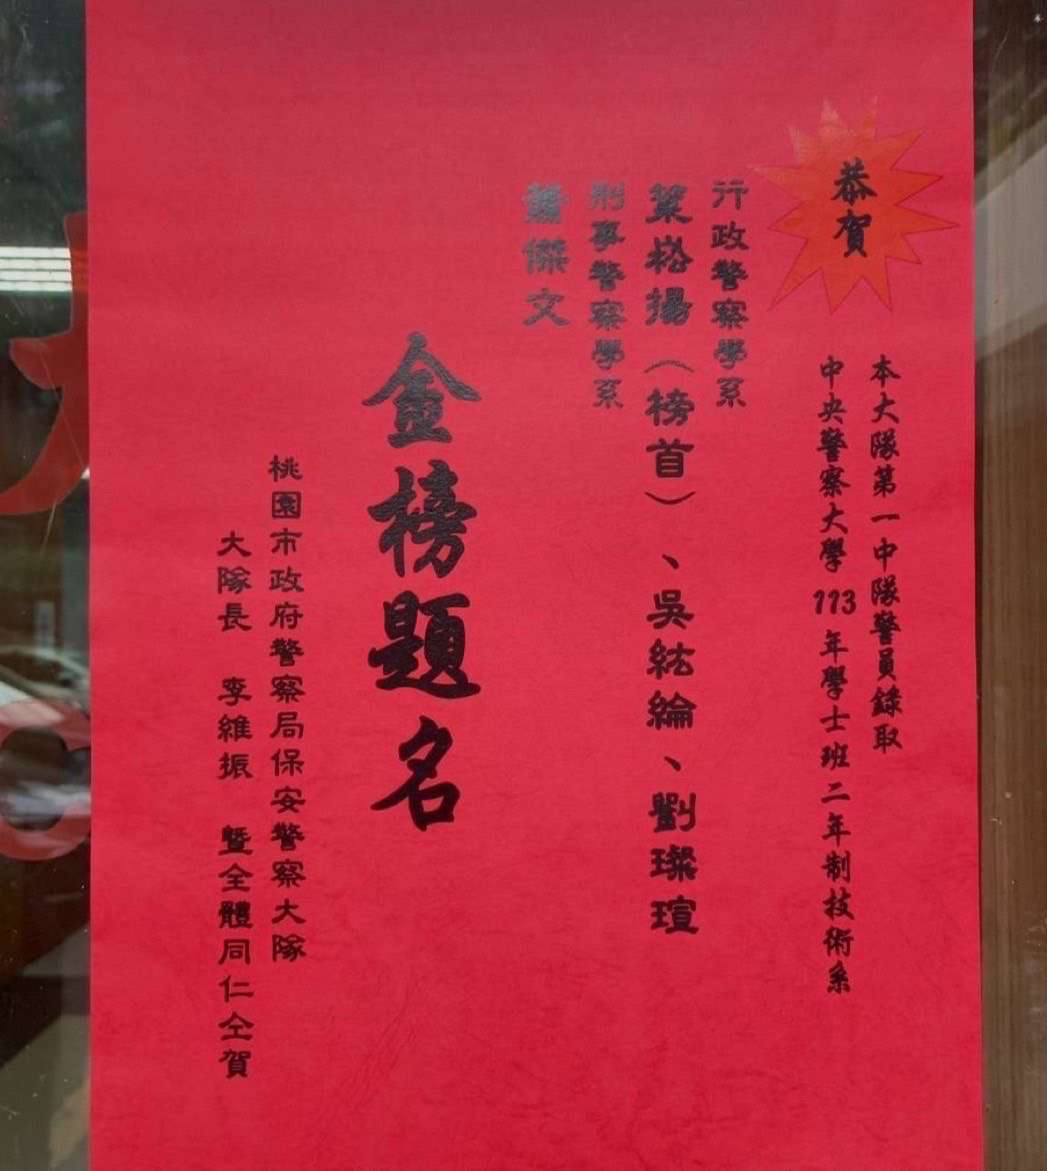 恭賀
本大隊第一中隊警員錄取
中央警察大學113年學士班二年制技術系
行政警察學系
葉崧揚（榜首）、吳紘綸、劉璨瑄
刑事警察學系
蕭傑文
金榜題名
桃園市政府警察局保安警察大隊
大隊長 李維振 暨全體同仁仝賀